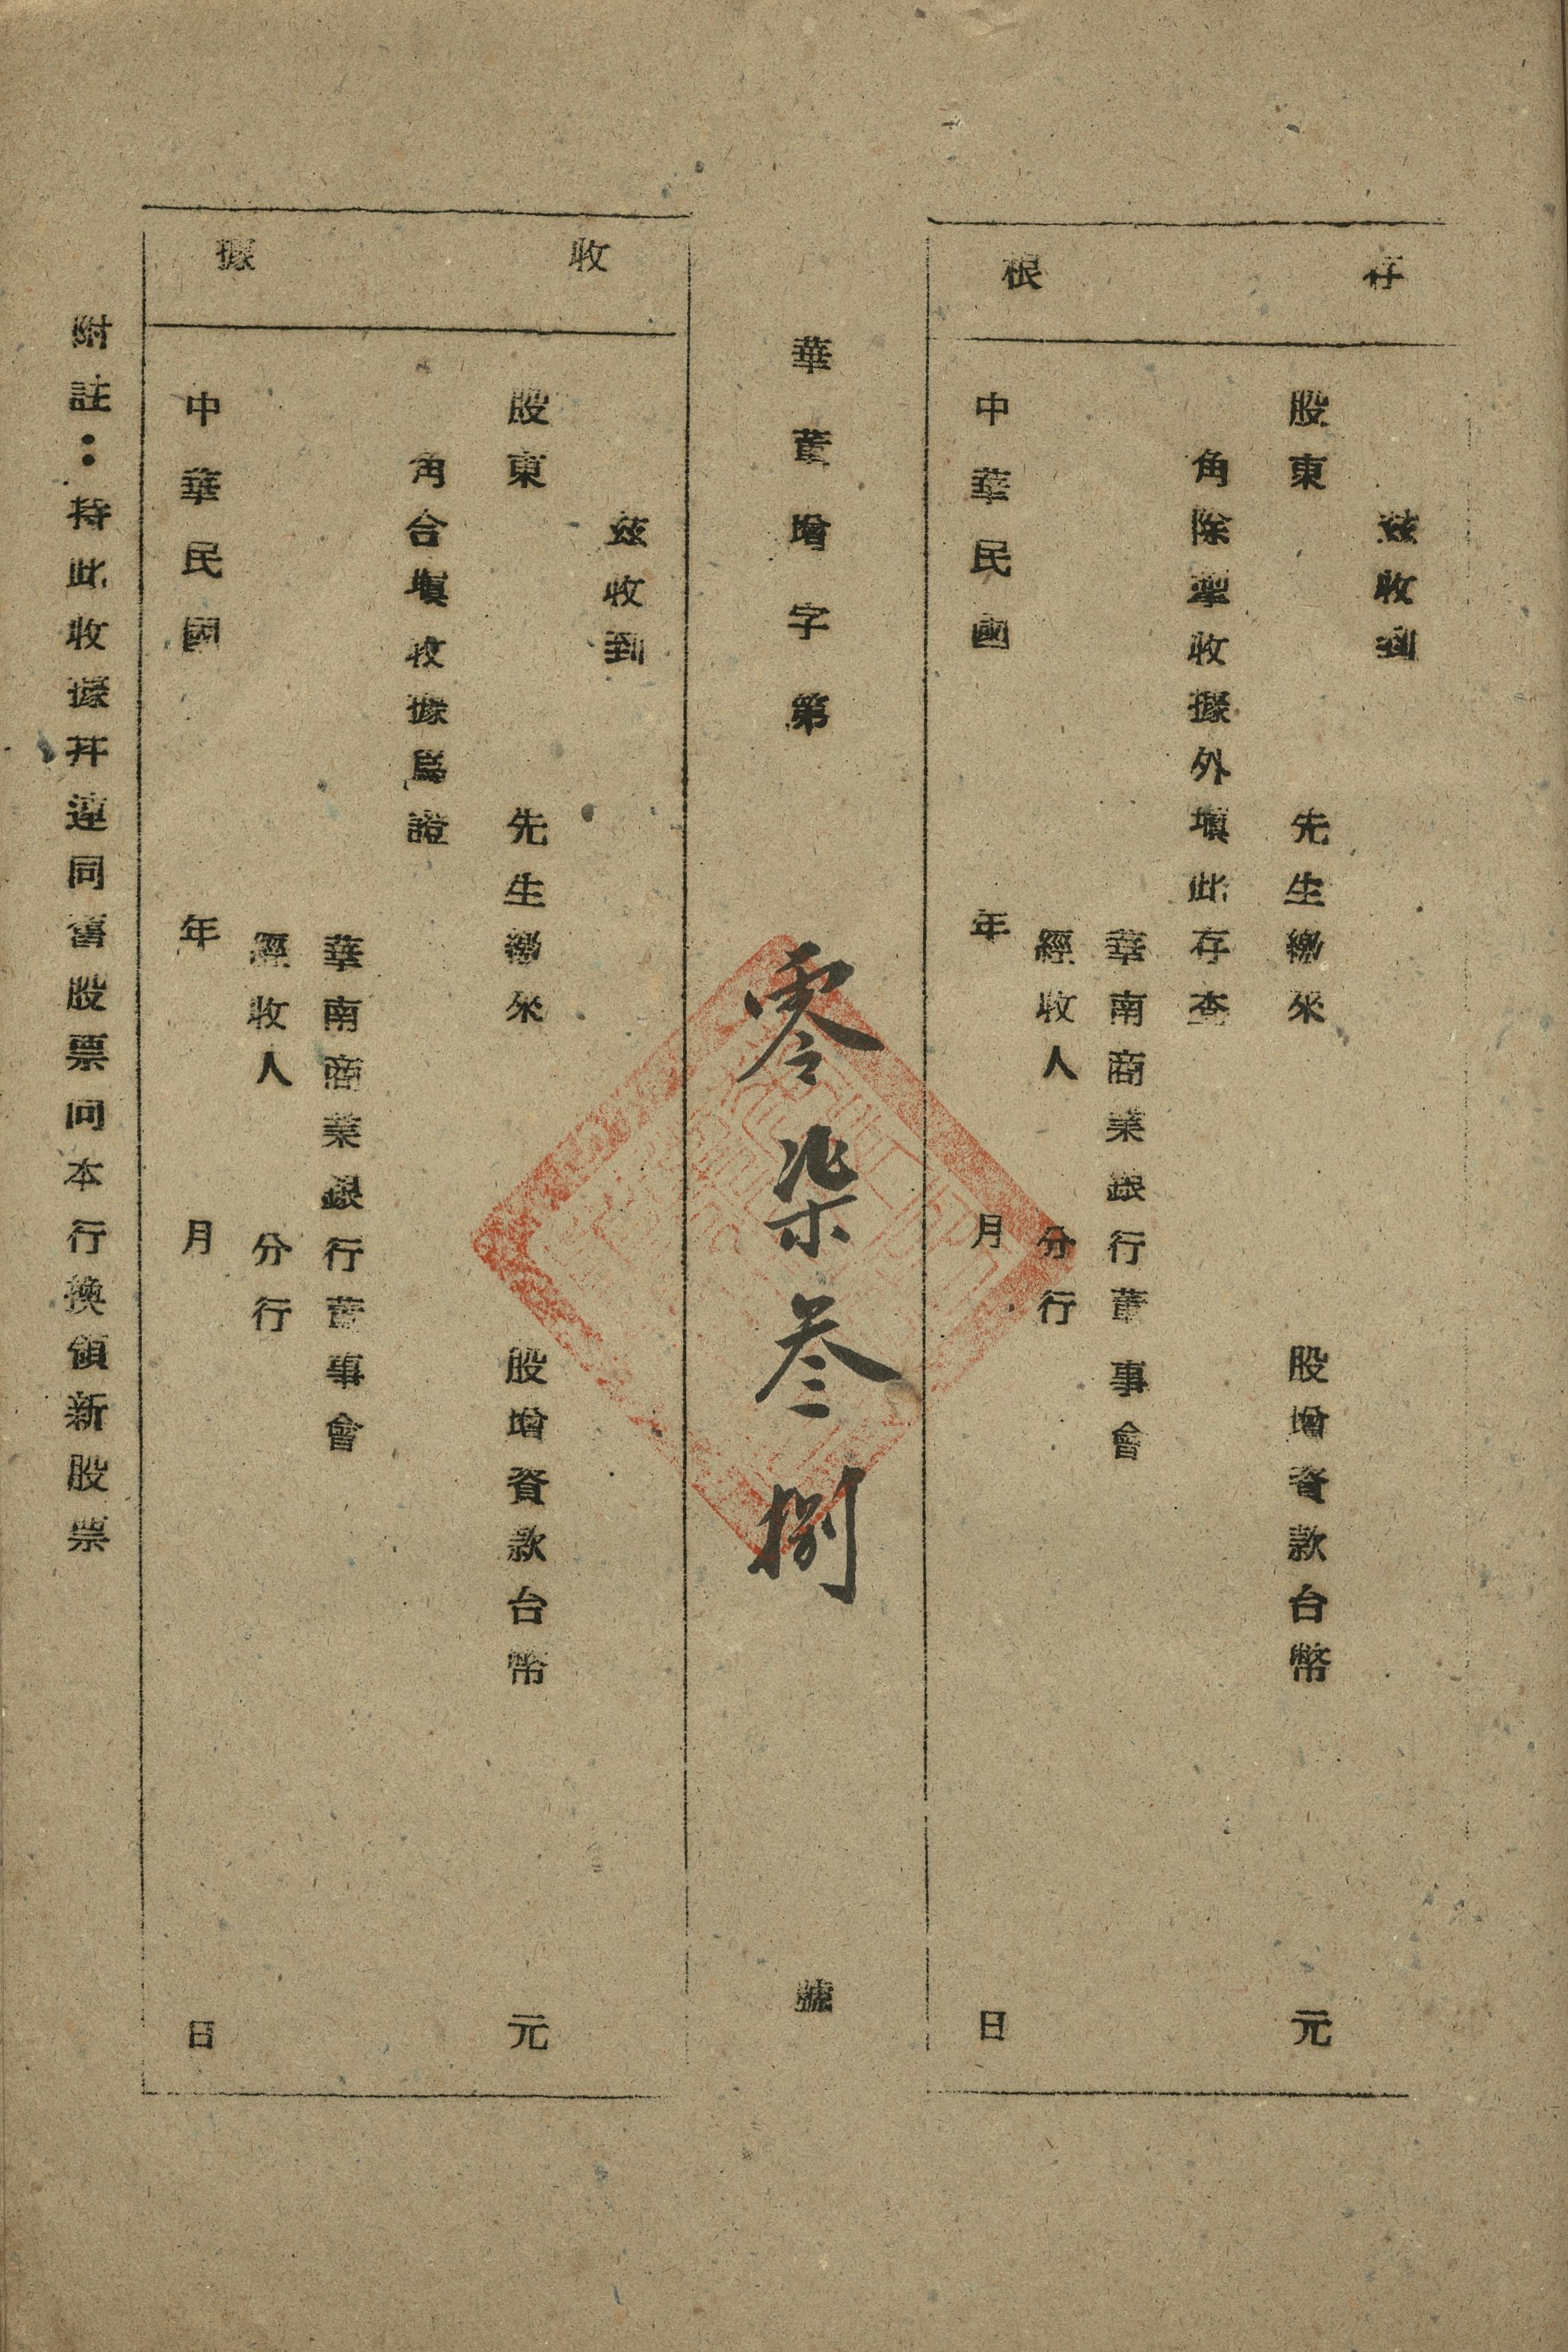 存根
茲收到
股東 先生繳來 股增資款台幣 元
角除掣收據外填此存查
華南商業銀行董事會
經收人 分行
中華民國 年 月 日
華董增字第 零柒叁捌 號
收據
茲收到
股東 先生繳來 股增資款台幣 元
角合填收據為證
華南商業銀行董事會
經收人 分行
中華民國 年 月 日
附註：持此收據并連同舊股票向本行換領新股票